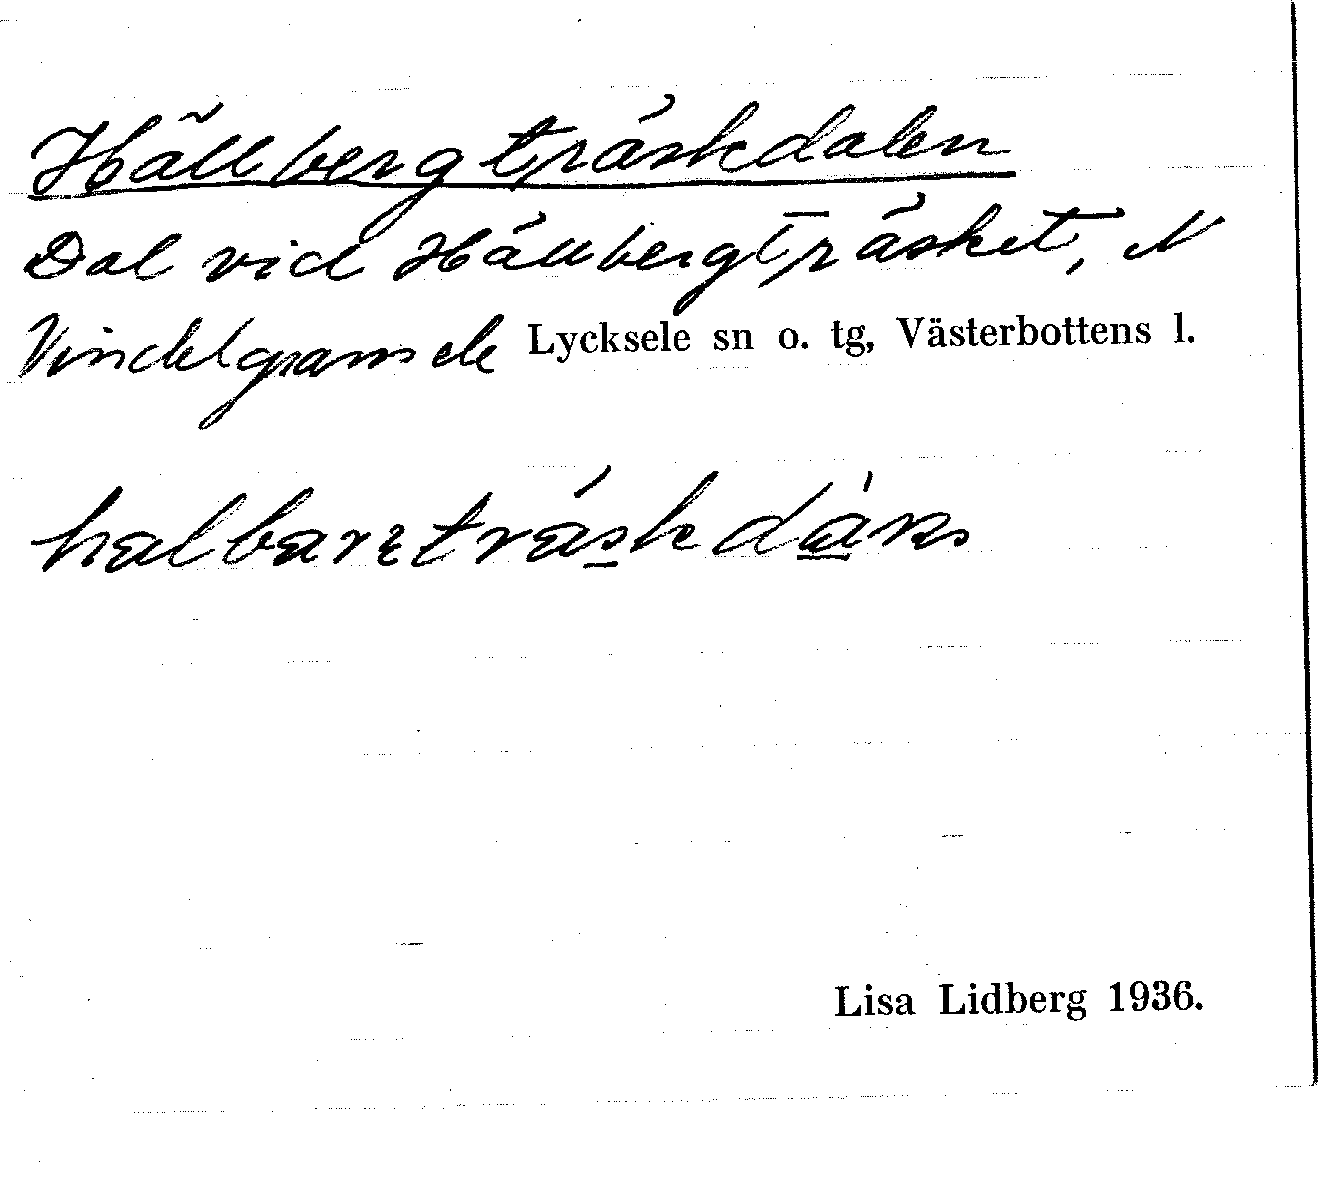 Hällbergträskdalen
Dal vid Hällbergträsket, N
Vindelgransele Lycksele sn o. tg, Västerbottens l.
Lisa Lidberg 1936.